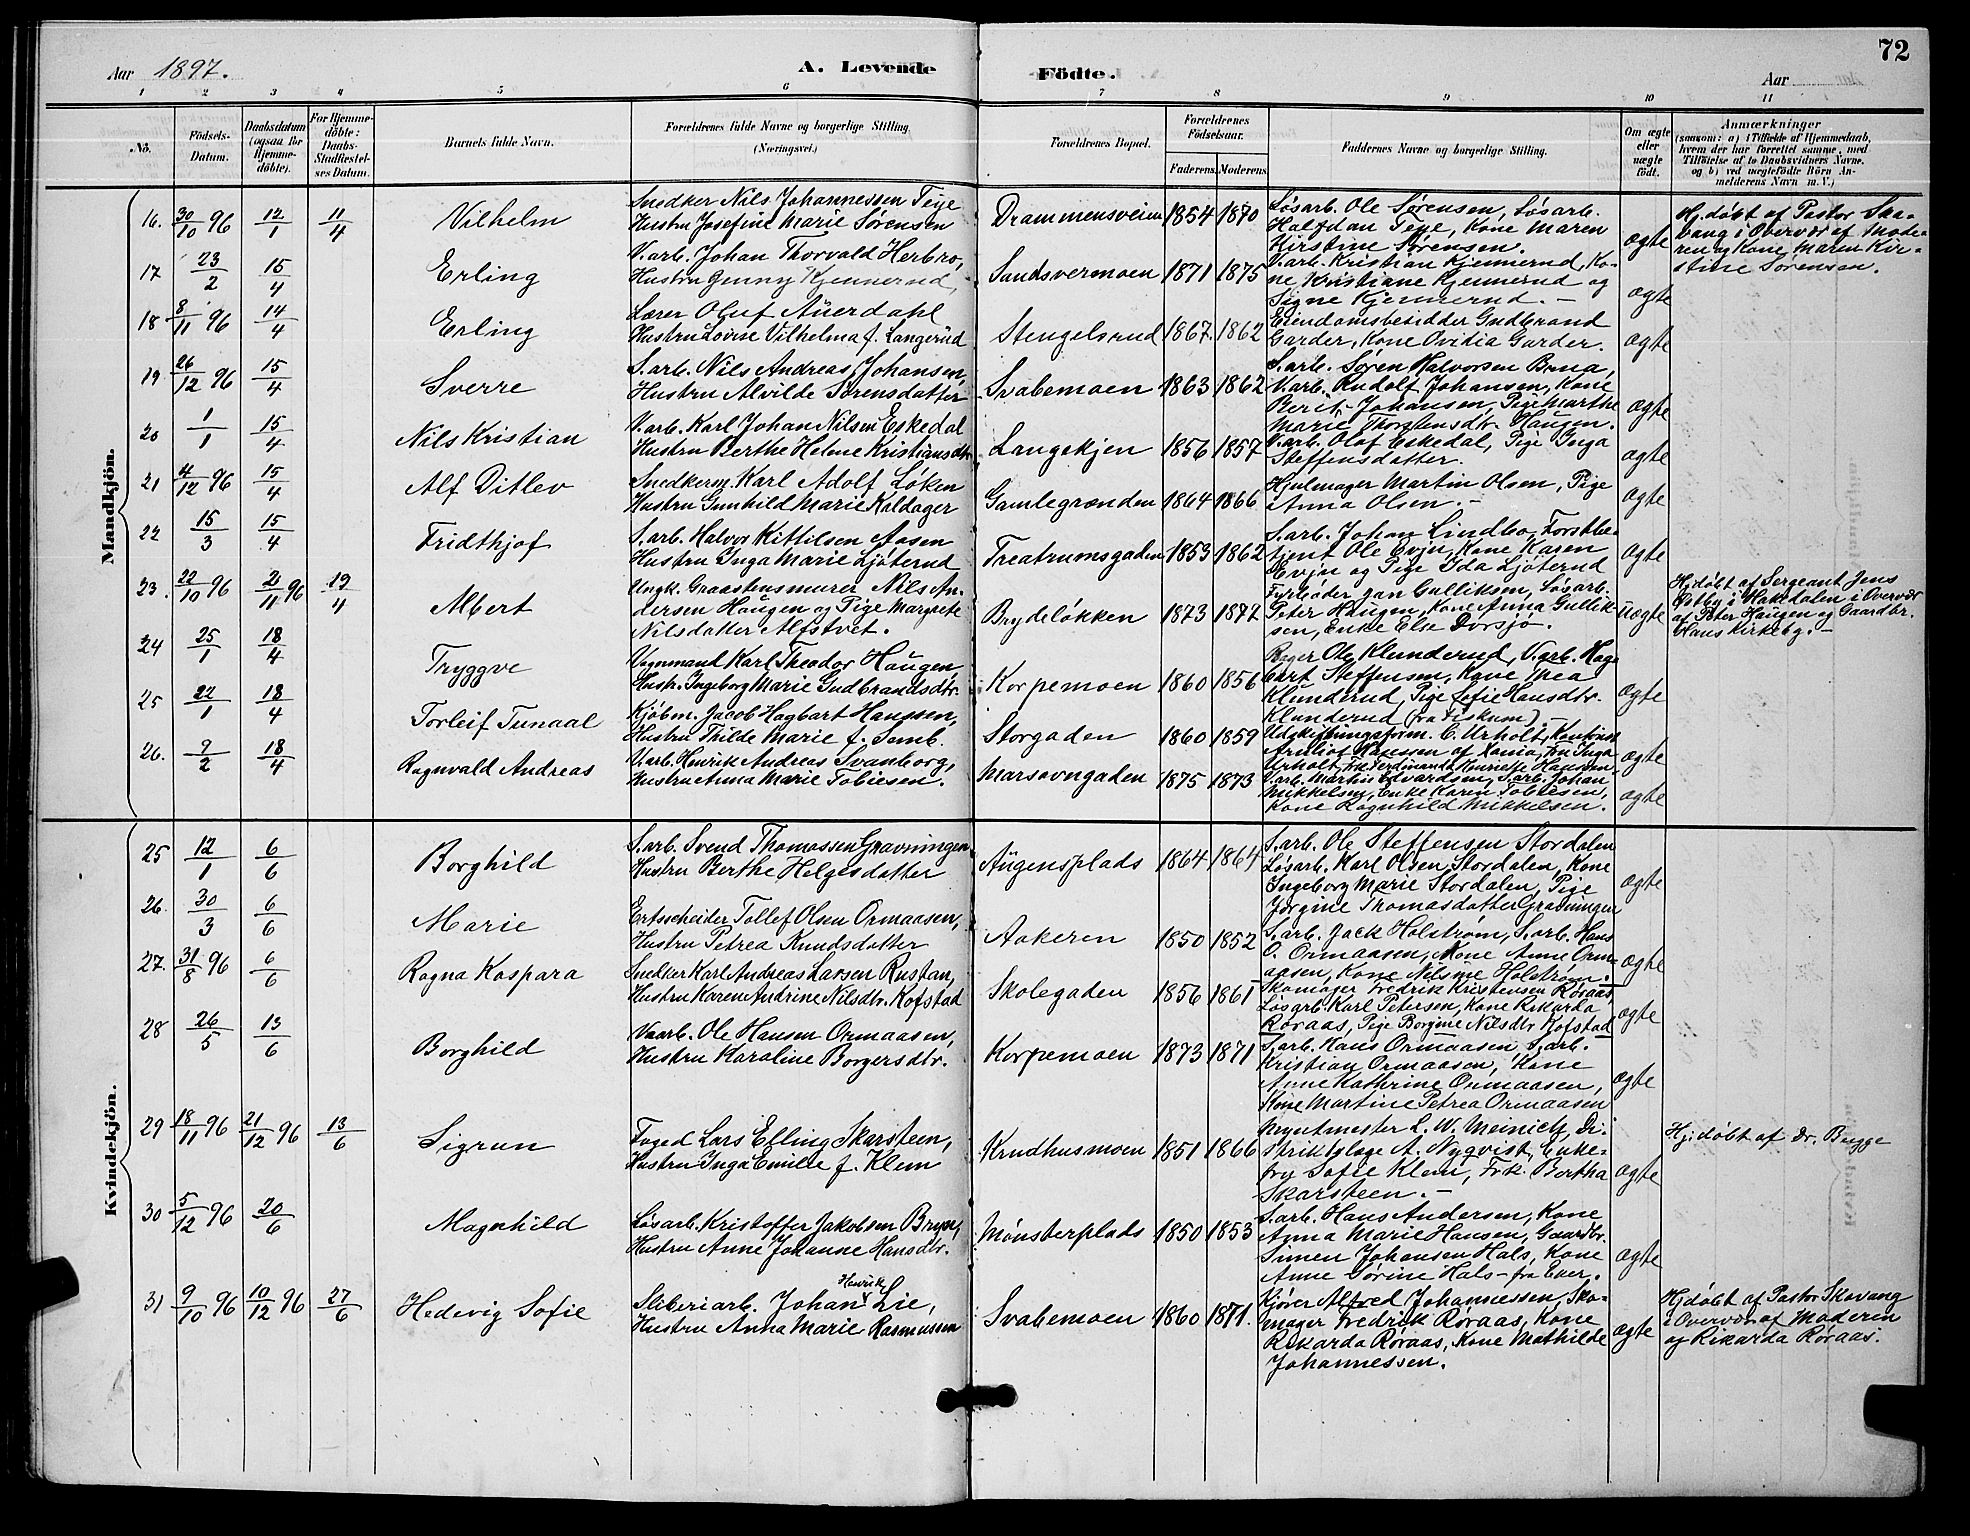 72
Aar 1897.
A. Levende
Födte.
Aar
1 2 3 4 5 6 7 8 9 10 11
No.
Födsels-Datum.
Daabsdatum (ogsaa for Hjemme-döbte).
For Hjemme-döbte: Daabs-Stadfæstel-ses Datum.
Barnets fulde Navn.
Forældrenes fulde Navne og borgerlige Stilling. (Næringsvei.)
Forældrenes Bopæl.
Forældrenes Födselsaar.
Faderens. Moderens.
Faddernes Navne og borgerlige Stilling.
Om ægte eller uægte födt.
Anmærkninger
(saasom: a) i Tilfælde af Hjemmedaab,
hvem der har forrettet samme, med
Tilföielse af to Daabsvidners Navne.
og b) ved uægtefödte Börn An-
melderens Navn m. V.)
Mandkjön.
16. 30/10 96 12/1 11/4 Vilhelm
Snedker Nils Johannessen Teje
Hustru Josefine Marie Sørensen
Drammensveien 1854 1870
Løsarb. Ole Sørensen, Løsarb.
Halfdan Teje, Kone Maren
Kirstine Sørensen.
ægte
Hj.døbt af Pastor Ska-
vang i Overvær af Mode-
ren og Kone Maren Kir-
stine Sørensen.
17 23/2 15/4 Erling
V.arb. Johan Thorvald Herbro,
Hustru Genny Kjennerud,
Sandsvermoen 1871 1875
V.arb. Kristian Kjennerud, Ko-
ne Kristiane Kjennerud og
Signe Kjennerud. –
ægte
18 8/11 96 14/4 Erling
Lærer Oluf Auerdahl
Hustru Lovise Vilhelma f. Langerud
Stengelsrud 1867. 1862
Eiendomsbesidder Gudbrand
Garder, Kone Ovidia Garder.
ægte
19 26/12 96 15/4 Sverre
S.arb. Nils Andreas Johansen,
Hustru Alvilde Sørensdatter
Svabemoen 1863 1862
S.arb. Søren Halvorsen Bona,
V.arb. Rudolf Johansen, Kone
Berit Johansen, Pige Marthe
Marie Thorstensdtr. Haugen.
ægte
20 1/1 15/4 Nils Kristian
V.arb. Karl Johan Nilsen Eskedal
Hustru Berthe Helene Kristiansdtr.
Langekjen 1856 1857
V.arb. Olaf Eskedal, Pige Inga
Steffensdatter.
ægte
21 4/12 96 15/4 Alf Ditlev
Snedkerm. Karl Adolf Løken
Hustru Gunhild Marie Kaldager
Gamlegrænden 1864 1866
Hjulmager Martin Olsen, Pige
Anna Olsen. –
ægte
22 15/3 15/4 Fridthjof
S.arb. Halvor Kittilsen Aasen
Hustru Inga Marie Ljøterud
Treatrumsgaden 1853 1862
S.arb. Johan Lindbo, Forstbe-
tjent Ole Evju, Kone Karen
Evju og Pige Ida Ljøterud
ægte
23. 22/10 96 2/11 96 19/4 Albert
Ungk. Graastensmurer Nils An-
dersen Haugen og Pige Margrete
Nilsdatter Alfstvet.
Brydeløkken 1873 1872
Fyrbøder Jan Gulliksen, Løsarb.
Peter Haugen, Kone Anna Gullik-
sen, Enke Else Dorsjø.
uægte
Hj.døbt af Sergeant Jens
Østby i Hakedalen i Overvær
af Peter Haugen og Gaardbr.
Hans Kirkeby. –
24 25/1 18/4 Tryggve
Vognmand Karl Theodor Haugen,
Hustr. Ingeborg Marie Gudbrandsdtr.
Korpemoen 1860 1856
Bager Ole Klunderud, V.arb. Hag-
bart Steffensen, Kone Thea
Klunderud, Pige Sofie Hansdtr.
Klunderud (fra Fiskum). –
ægte
25 22/1 18/4 Torleif Tunaal
Kjøbm. Jacob Hagbart Hanssen,
Hustru Thilde Marie f. Semb.
Storgaden 1860 1859
Udskiftningsform. C. Urholt, Kontorist
Arnliot Hanssen af Xania, Fru Inga
Urholt, Frk. Ferdinanda Henriette Hanssen
ægte
26. 9/2 18/4 Ragnvald Andreas
V.arb. Henrik Andreas Svanborg,
Hustru Anna Marie Tobiesen.
Marsovngaden 1875 1873
V.arb. Martin Edvardsen, S.arb. Johan
Mikkelsen, Enke Karen Tobiesen,
Kone Ragnhild Mikkelsen.
ægte
Kvindekjön.
25 12/1 6/6 Borghild
S.arb. Svend Thomassen Gravningen
Hustru Berthe Helgesdatter
Augensplads 1864 1864
S.arb. Ole Steffensen Stordalen
Løsarb. Karl Olsen Stordalen, Kone
Ingeborg Marie Stordalen, Pige
Jørgine Thomasdatter Gravningen
ægte
26. 30/3 6/6 Marie
Ertsscheider Tollef Olsen Ormaasen,
Hustru Petrea Knudsdatter
Aakeren 1850 1852
S.arb. Jack Holstrøm, S.arb. Hans
O. Ormaasen, Kone Anne Orm-
aasen, Kone Nilsine Holstrøm.
ægte
27. 31/8 96 6/6 Ragna Kaspara
Snedker Karl Andreas Larsen Rustan,
Hustru Karen Andrine Nilsdtr. Kofstad
Skolegaden 1856 1861
Skomager Fredrik Kristensen Røraas,
Løsarb. Karl Petersen, Kone Rikarda
Røraas, Pige Borgine Nilsdtr Kofstad
ægte
28 26/5 13/6 Borghild
Vaarb. Ole Hansen Ormaasen,
Hustru Karoline Borgersdtr.
Korpemoen 1873 1871
S.arb. Hans Ormaasen, S.arb.
Kristian Ormaasen, Kone
Anne Kathrine Ormaasen,
Kone Martine Petrea Ormaasen
ægte
29 18/11 96 21/12 96 13/6 Sigrun
Foged Lars Efling Skarsteen,
Hustru Inga Emilie f. Klem
Krudhusmoen 1851 1866
Myntmester L. W. Meinich, Di-
striktslæge A. Nyqvist, Enke-
fru Sofie Klem, Frk. Bertha
Skarsteen. –
ægte
Hj.døbt af Dr. Bugge
30 5/12 96 20/6 Magnhild
Løsarb. Kristoffer Jakobsen Bryn,
Hustru Anne Johanne Hansdtr.
Mønsterplads 1850 1853
S.arb. Hans Andersen, Kone
Anna Marie Hansen, Gaardbr.
Simen Johansen Hals, Kone
Anne Sørine Hals – fra Eker.
ægte
31 9/10 96 10/12 96 27/6 Hedevig Sofie
Henrik
Sliberiarb. Johan Lie,
Hustru Anna Marie Rasmussen
Svabemoen 1860 1871.
Kjører Alfred Johannessen, Sko-
mager Fredrik Røraas, Kone
Rikarda Røraas, Kone Mathilde
Johannessen.
ægte
Hj.døbt af Pastor Skavang
i Overvær af Moderen
og Rikarda Røraas.